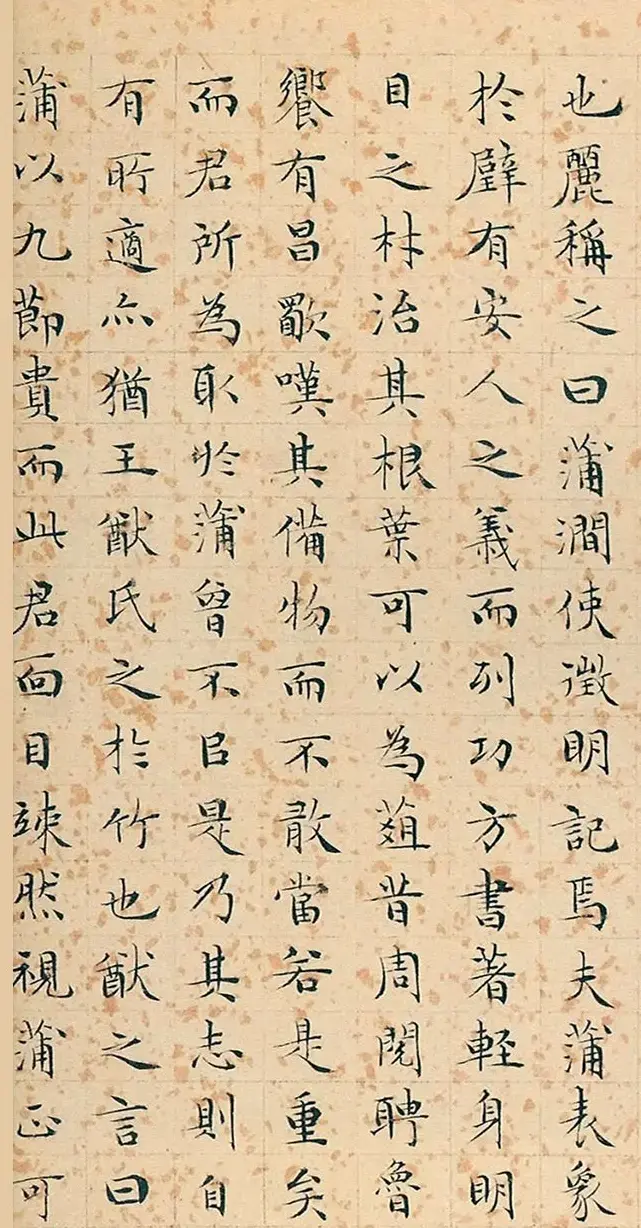 也麗稱之曰蒲澗使徵明記焉夫蒲表象
於璧有安人之義而列功方書著輕身明
目之材治其根葉可以為葅昔周閱聘魯
饗有昌歜嘆其備物而不敢當若是重矣
而君所為取於蒲曾不㠯是乃其志則自
有所適亦猶王猷氏之於竹也猷之言曰
蒲以九莭貴而此君面目竦然視蒲正可